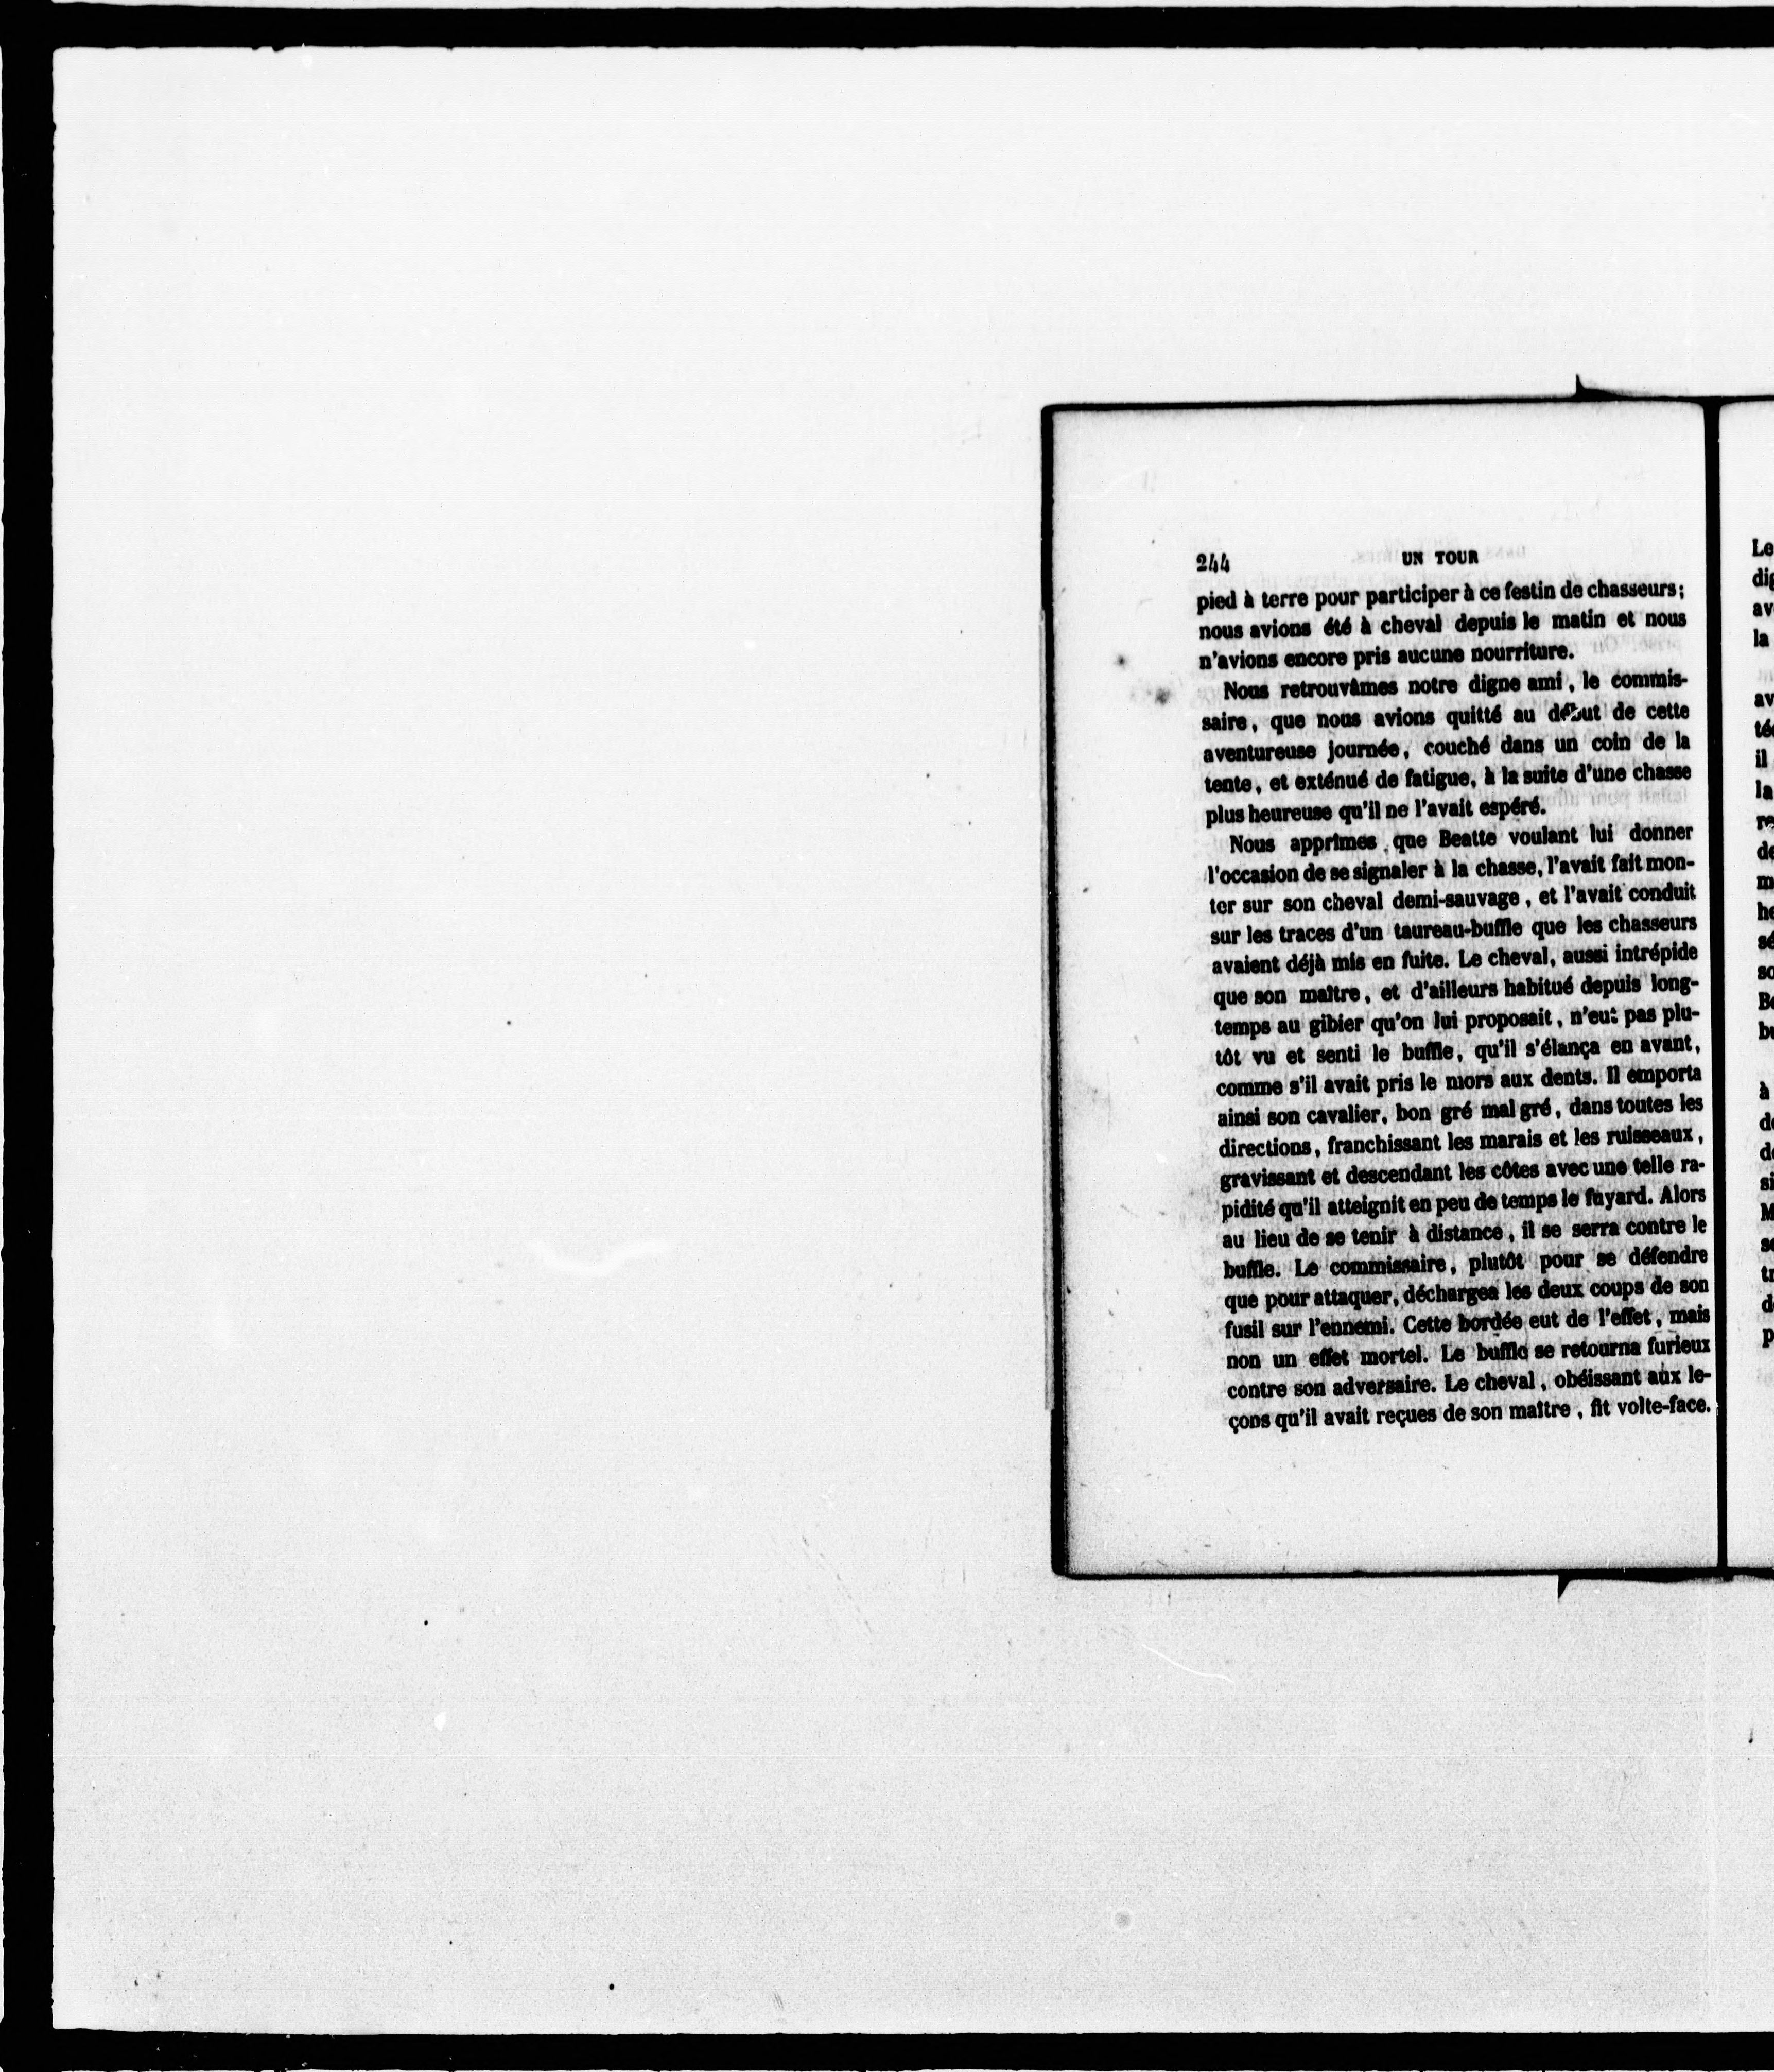 244 UN TOUR
pied à terre pour participer à ce festin de chasseurs;
nous avions été à cheval depuis le matin et nous
n'avions encore pris aucune nourriture.
Nous retrouvâmes notre digne ami, le commis-
saire, que nous avions quitté au début de cette
aventureuse journée, couché dans un coin de la
tente, et exténué de fatigue, à la suite d'une chasse
plus heureuse qu'il ne l'avait espéré.
Nous apprîmes que Beatte voulant lui donner
l'occasion de se signaler à la chasse, l'avait fait mon-
ter sur son cheval demi-sauvage, et l'avait conduit
sur les traces d'un taureau-buffle que les chasseurs
avaient déjà mis en fuite. Le cheval, aussi intrépide
que son maître, et d'ailleurs habitué depuis long-
temps au gibier qu'on lui proposait, n'eut pas plu-
tôt vu et senti le buffle, qu'il s'élança en avant,
comme s'il avait pris le mors aux dents. Il emporta
ainsi son cavalier, bon gré mal gré, dans toutes les
directions, franchissant les marais et les ruisseaux,
gravissant et descendant les côtes avec une telle ra-
pidité qu'il atteignit en peu de temps le fuyard. Alors
au lieu de se tenir à distance, il se serra contre le
buffle. Le commissaire, plutôt pour se défendre
que pour attaquer, déchargea les deux coups de son
fusil sur l'ennemi. Cette bordée eut de l'effet, mais
non un effet mortel. Le buffle se retourna furieux
contre son adversaire. Le cheval, obéissant aux le-
çons qu'il avait reçues de son maître, fit volte-face.
Le
dig
av
la
av
té
il
la
de
m
he
sé
so
Be
bu
à
de
de
si
M
se
tr
d
p